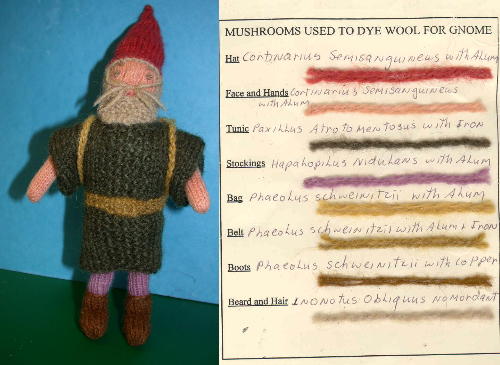 MUSHROOMS USED TO DYE WOOL FOR GNOME
Hat Cortinarius Semisanguineus with Alum
Face and Hands Cortinarius Semisanguineus
with Alum
Tunic Paxillus Atrotomentosus with Iron
Stockings Hapalopilus Nidulans with Alum
Bag Phaeolus schweinitzii with Alum
Belt Phaeolus schweinitzii with Alum + Iron
Boots Phaeolus schweinitzii with Copper
Beard and Hair Inonotus Obliquus no mordant